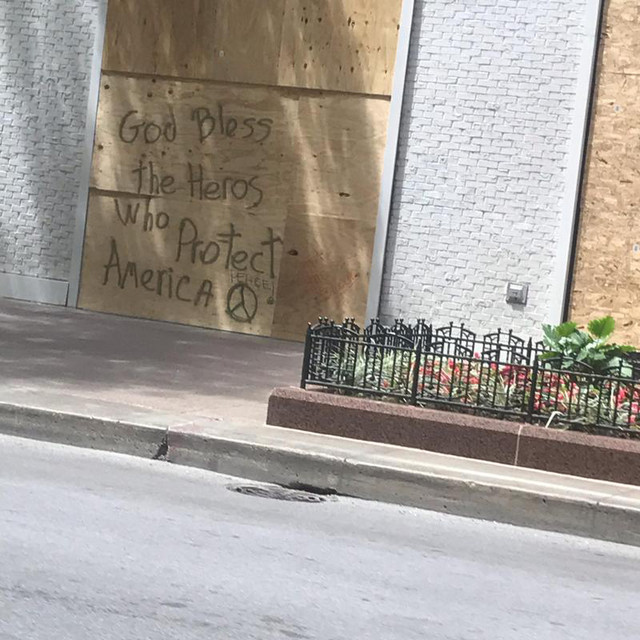 God Bless
the Heros
Who Protect
America
PEACE